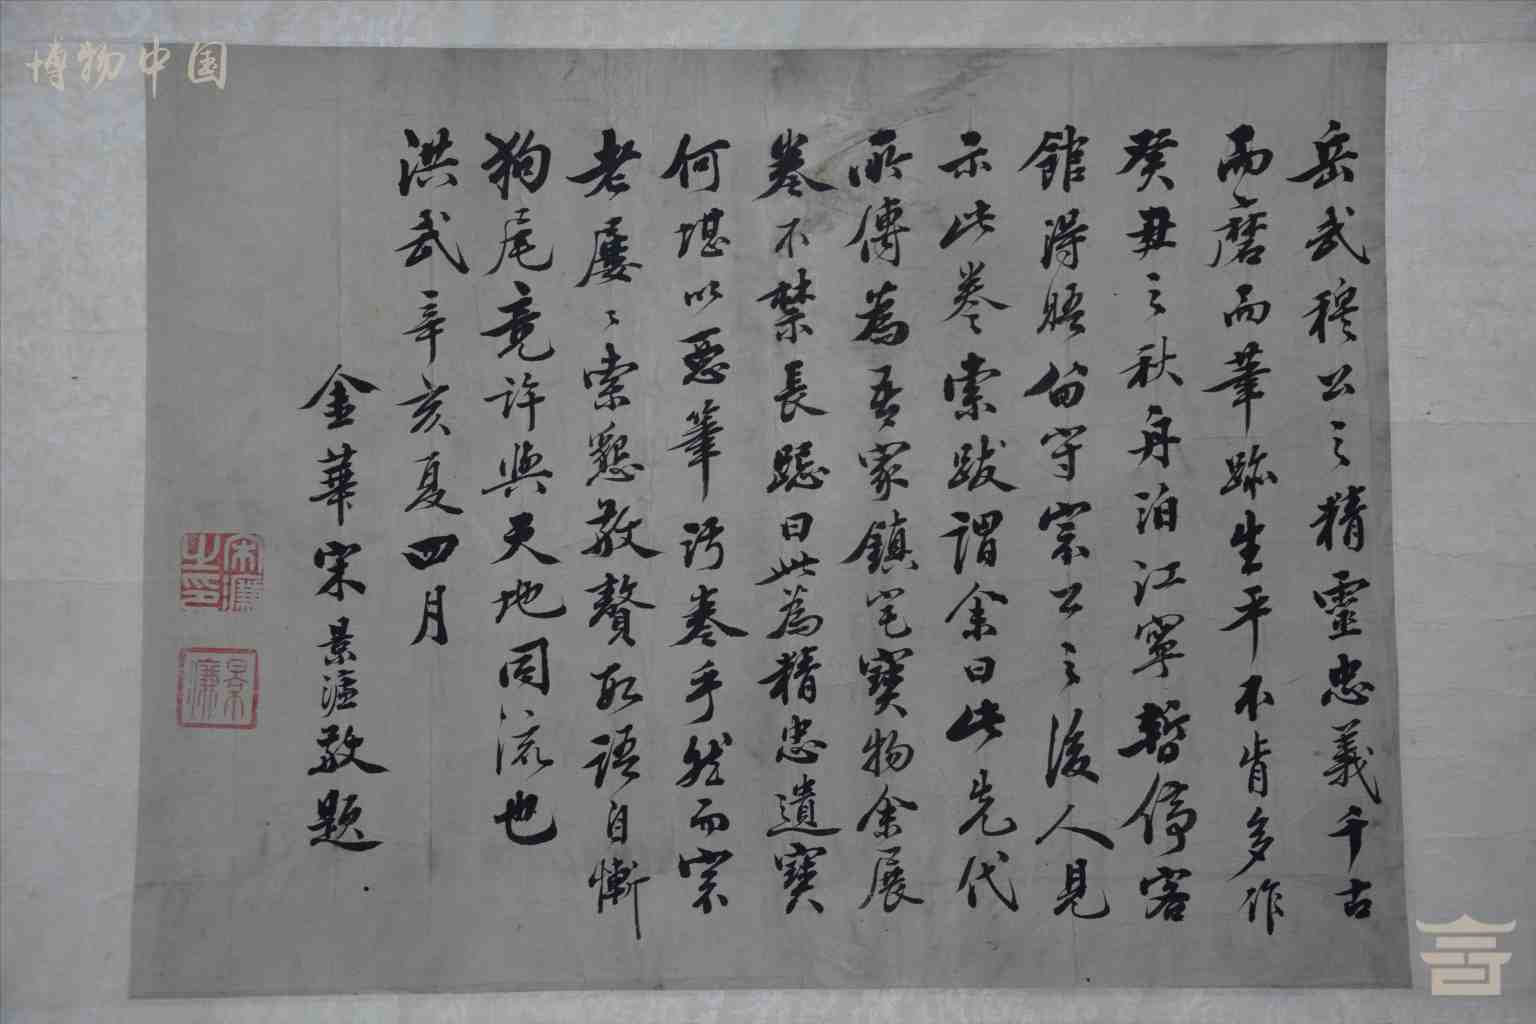 博物中国
岳武穆公之精靈忠義千古
而磨而筆跡生平不肯多作
癸丑之秋舟泊江寧暫停客
館得晤留守宗公之後人見
示此卷索跋謂余曰此先代
所傳為吾家鎮宅寶物余展
卷不禁長跽曰此為精忠遺寶
何堪以惡筆污卷乎然而宗
老屢〻索懇敬贅數語自慚
狗尾竟許與天地同流也
洪武辛亥夏四月
金華宋景濂敬題
宋濂之印
景濂